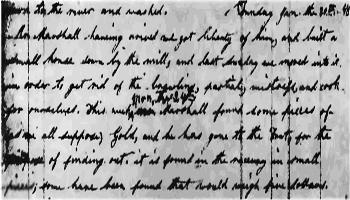 down to the river and washed. Sunday Jan. the 30th - 48
Marshall having arived we got liberty of him, and built a
small house down by the mill, and last Sunday we moved into it
in order to get rid of the brawling, partial, mistress, and cook
for ourselves. This week Marshall found some pieces of
we all suppose, Gold, and he has gone to the Fort, for the
of finding out. it is found in the raceway in small
pieces; some have been found that would weigh five dollars.